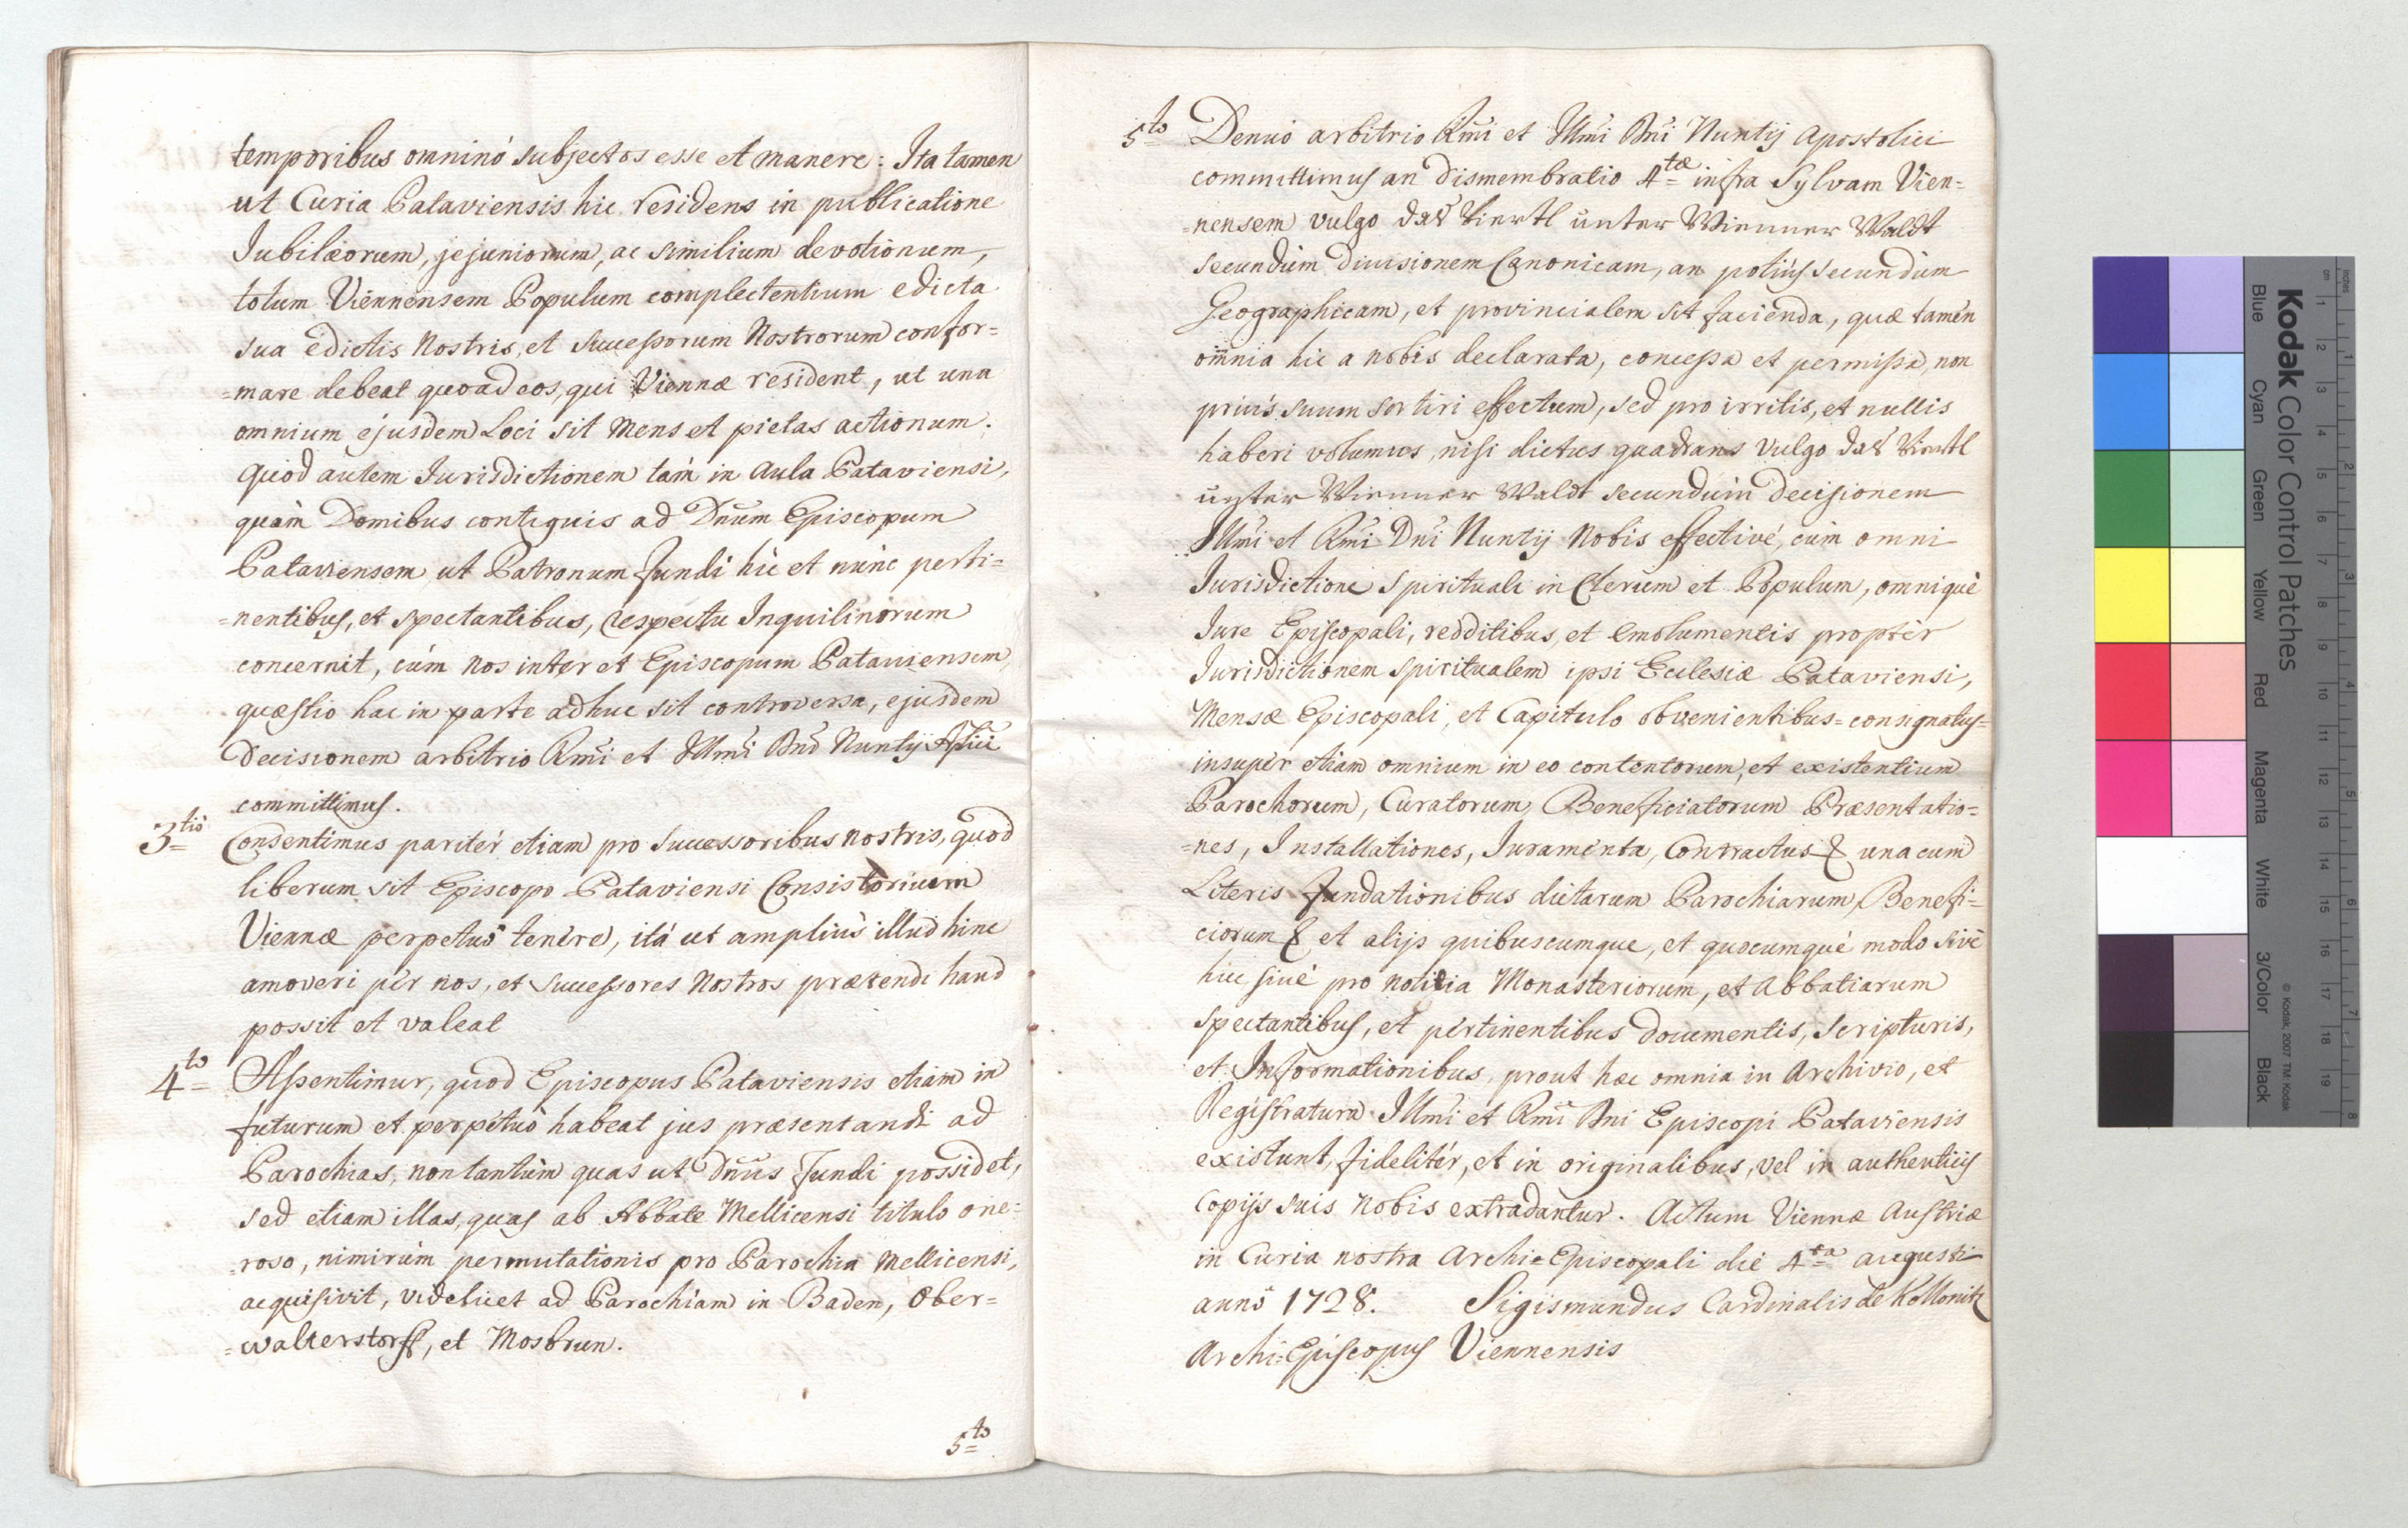 temporibus omninó subjectos esse et manere: Ita tamen
ut Curia Pataviensis hic residens in publicatione
Jubilæorum, jejuniorum, ac similium devotionum,
totum Viennensem Populum complectentium edicta
sua edictis Nostris, et Successorum Nostrorum confor=
=mare debeat quoad eos, qui Viennæ resident, ut una
omnium ejusdem Loci sit Mens et pietas actionum.
Quod autem Jurisdictionem tam in Aula Pataviensi,
quàm Domibus contiguis ad Dnum Episcopum
Pataviensem ut Patronum fundi hic et nunc perti=
=nentibus, et spectantibus, respectu Inquilinorum
concernit, cúm nos inter et Episcopum Pataviensem,
quæstio hac in parte adhuc sit controversa, ejusdem
Decisionem arbitrio Rmi et Illmi Dni Nuntij Aplici
committimus.
3tiò Consentimus paritér etiam pro Successoribus nostris, quod
liberum sit Episcopo Pataviensi Consistorium
Viennæ perpetuò tenere, itá ut amplius illud hinc
amoveri per nos, et Successores Nostros prætendi haud
possit et valeat
4to Assentimur, quod Episcopus Pataviensis etiam in
futurum et perpetuò habeat jus præsentandi ad
Parochias, non tantùm quas ut Dnus fundi possidet,
sed etiam illas, quas ab Abbate Mellicensi titulo one=
=roso, nimirùm permutationis pro Parochia Mellicensi,
acquisivit, videlicet ad Parochiam in Baden, Ober=
=walterstorff, et Mosbrun.
5to
5to Denuò arbitrio Rmi et Illmi Dni Nuntij Apostolici
committimus an dismembratio 4tæ infra Sylvam Vien=
=nensem vulgo das Viertl unter Wienner Waldt
secundùm divisionem Canonicam, an potiùs secundùm
Geographicam, et provincialem sit facienda, quæ tamen
omnia hic a nobis declarata, concessa et permissa, non
priùs suum sortiri effectum, sed pro irritis, et nullis
haberi volumus, nisi dictus quadrans vulgo das Viertl
unter Wienner Waldt secundùm decisionem
Illmi et Rmi Dni Nuntij Nobis effectivé, cùm omni
Jurisdictione Spirituali in Clerum et Populum, omniquè
Jure Episcopali, redditibus, et emolumentis proptèr
Jurisdictionem Spiritualem ipsi Ecclesiæ Pataviensi,
Mensæ Episcopali, et Capitulo obvenientibus=consignatus=
insupèr etiam omnium in eo contentorum, et existentium
Parochorum, Curatorum, Beneficiatorum Præsentatio=
=nes, Installationes, Juramenta, Contractus & una cum
Literis fundationibus dictarum Parochiarum, Benefi=
ciorum & et alijs quibuscumque, et quocumquè modo sivè
huc sivè pro notitia Monasteriorum, et Abbatiarum
spectantibus, et pertinentibus documentis, scripturis,
et Informationibus, prout hæc omnia in Archivio, et
Registratura Illmi et Rmi Dni Episcopi Pataviensis
existunt, fidelitér, et in originalibus, vel in authenticis
copijs suis Nobis extradantur. Actum Viennæ Austriæ
in Curia nostra Archi=Episcopali die 4ta augusti
annò 1728. Sigismundus Cardinalis de Kollonitz
Archi=Episcopus Viennensis
Kodak Color Control Patches
Blue Cyan Green Yellow Red Magenta White 3/Color Black
© Kodak, 2007 TM: Kodak
inches 1 2 3 4 5 6 7 8
cm 1 2 3 4 5 6 7 8 9 10 11 12 13 14 15 16 17 18 19